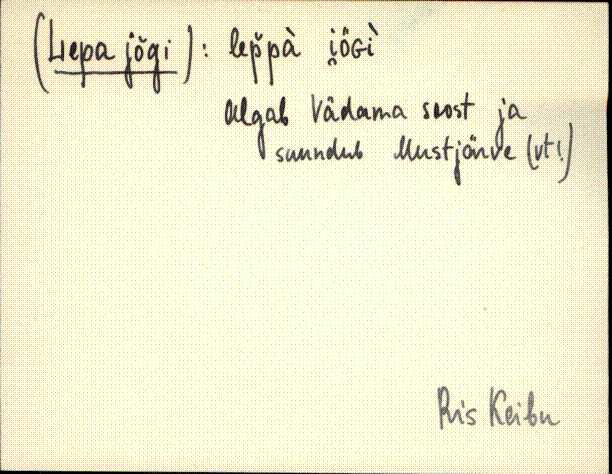 (Lepa jõgi): lep̆pà i̯õGì
Algab Vâdama soost ja
suundub Mustjärve (vt!)
Ris Keibu